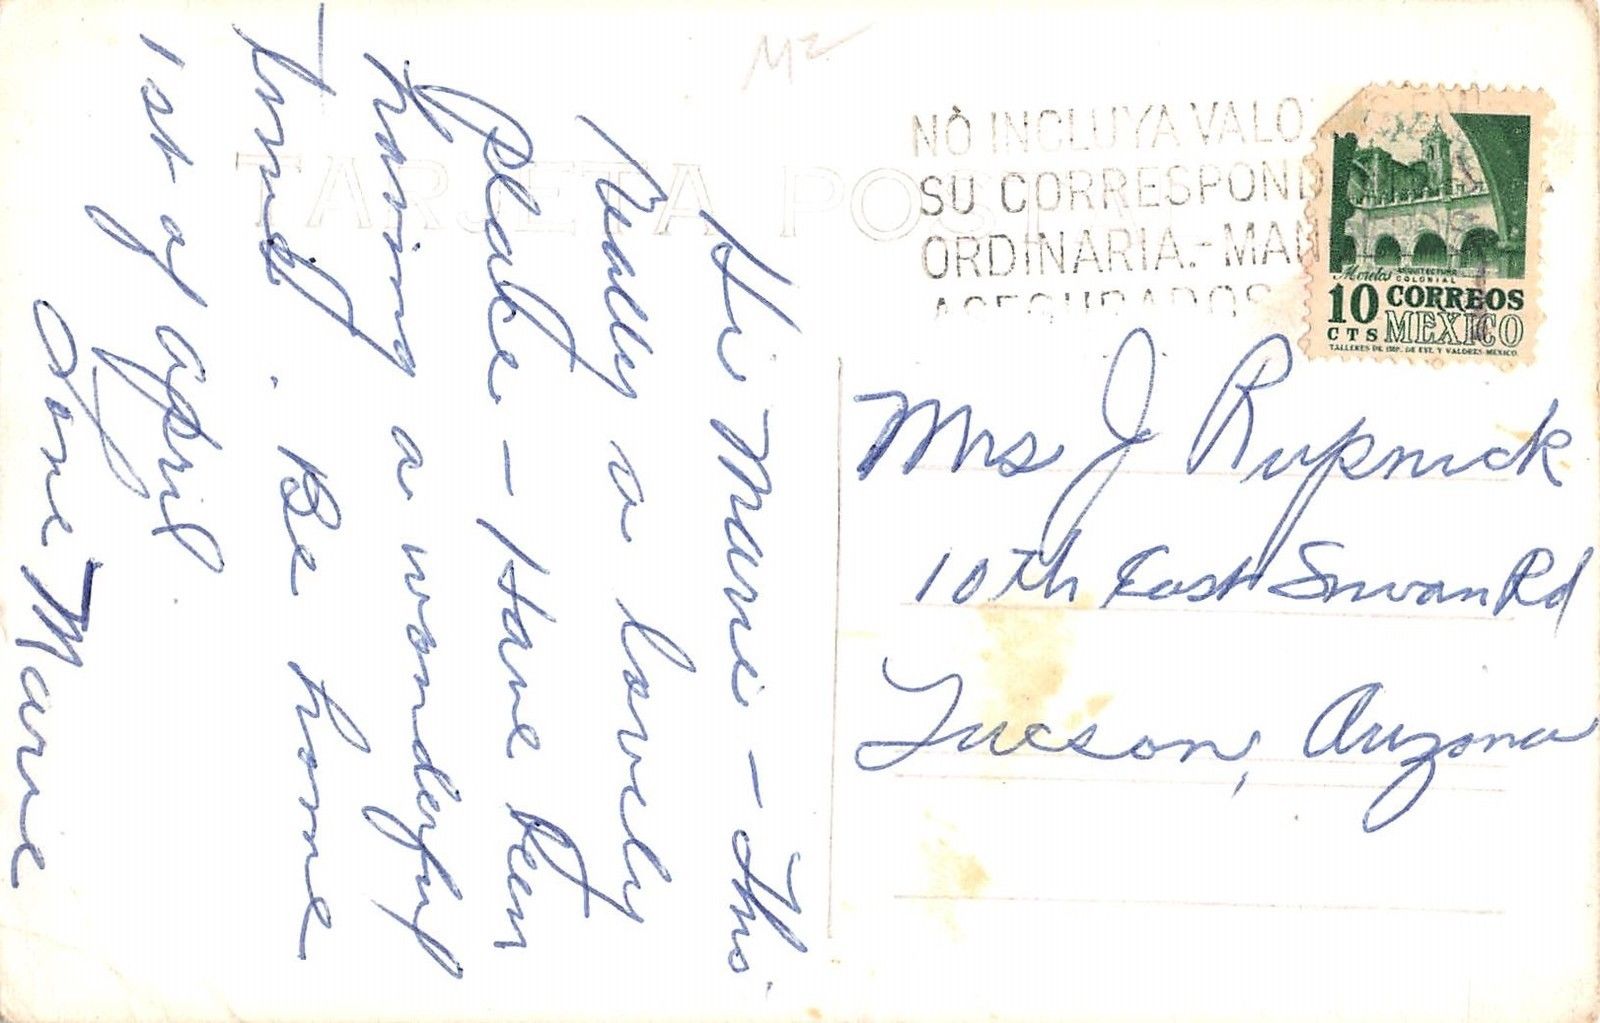 Hi Marie - This
really a lovely
place - Have been
having a wonderful
time. Be home
1st of April
Love Marie
M2
TARJETA POSTAL
NO INCLUYA VALO
SU CORRESPOND
ORDINARIA.- MAN
ASEGURADOS
Morelos ARQUITECTURA
COLONIAL
10 CORREOS
CTS MEXICO
TALLERES DE IMP. DE EST. Y VALORES-MEXICO.
Mrs J Rupnick
10th East Swan Rd
Tucson, Arizona